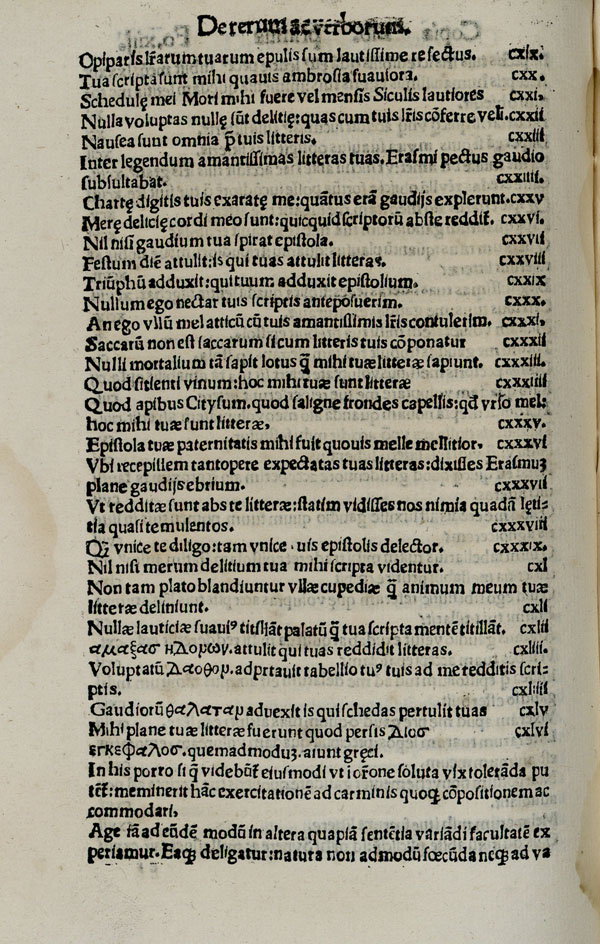 De rerum ac verborum.
Opiparis lr̃arum tuarum epulis sum lautissime refectus. cxix.
Tua scripta sunt mihi quauis ambrosia suauiora. cxx.
Schedulę mei Mori mihi fuere vel mensis Siculis lautiores cxxi.
Nulla voluptas nullę sũt delitię: quas cum tuis lr̃is cõferre veli. cxxii
Nausea sunt omnia p̃ tuis litteris. cxxiii
Inter legendum amantissimas litteras tuas. Erasmi pectus gaudio
subsultabat. cxxiiii.
Chartę digitis tuis exaratę me: quãtus erã gaudijs explerunt. cxxv
Merę delicię cordi meo sunt: quicquid scriptorũ abs te reddit̃. cxxvi.
Nil nisi gaudium tua spirat epistola. cxxvii
Festum diẽ attulit: is qui tuas attulit litteras. cxxviii
Triũphũ adduxit: qui tuum adduxit epistolium. cxxix
Nullum ego nectar tuis scriptis anteposuerim. cxxx.
An ego vllũ mel atticũ cũ tuis amantissimis lr̃is contulerim. cxxxi.
Saccarũ non est saccarum si cum litteris tuis cõponatur cxxxii
Nulli mortalium tã sapit lotus q̃ mihi tuæ litteræ sapiunt. cxxxiii.
Quod sitienti vinum: hoc mihi tuæ sunt litteræ cxxxiiii
Quod apibus Citysum. quod saligne frondes capellis: qd̃ vrso mel:
hoc mihi tuæ sunt litteræ, cxxxv.
Epistola tuæ paternitatis mihi fuit quouis melle mellitior. cxxxvi.
Vbi recepissem tantopere expectatas tuas litteras: dixisses Erasmuʒ
plane gaudijs ebrium. cxxxvii
Vt redditæ sunt abs te litteræ: statim vidisses nos nimia quadã lęti-
tia quasi temulentos. cxxxviii
Qȝ vnice te diligo: tam vnice uis epistolis delector. cxxxix.
Nil nisi merum delitium tua mihi scripta videntur. cxl
Non tam plato blandiuntur vllæ cupediæ q̃ animum meum tuæ
litteræ deliniunt. cxli
Nullæ lauticiæ suauiꝰ titillãt palatũ q̃ tua scripta mentẽ titillãt. cxlii
αμαξασ ηδορων. attulit qui tuas reddidit litteras. cxliii.
Voluptatũ Δαοθορ. adportauit tabellio tuꝰ tuis ad me redditis scri-
ptis. cxliiii
Gaudiorũ θαλαταρ aduexit is qui schedas pertulit tuas cxlv
Mihi plane tuæ litteræ fuerunt quod persis Διοσ cxlvi
εγκεφαλοσ. quemadmoduʒ. aiunt gręci.
In his porro si q̃ videbũt̃ eiusmodi vt i or̃one soluta vix tolerãda pu
tẽt: meminerit hãc exercitationẽ ad carminis quoqꝫ cõpositionem ac
commodari,
Age iã ad eũdẽ modũ in altera quapiã sentẽtia variãdi facultatẽ ex
periamur. Eaqꝫ deligatur: natura non admodũ fœcũda neqꝫ ad va